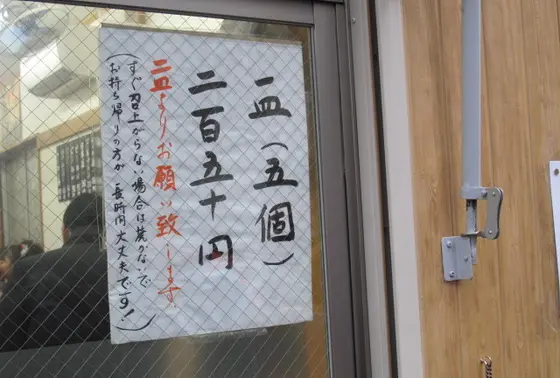 一皿(五個)
二百五十円
二皿よりお願い致します。
(すぐ召上がらない場合は焼かないで
お持ち帰りの方が長時間大丈夫です!)